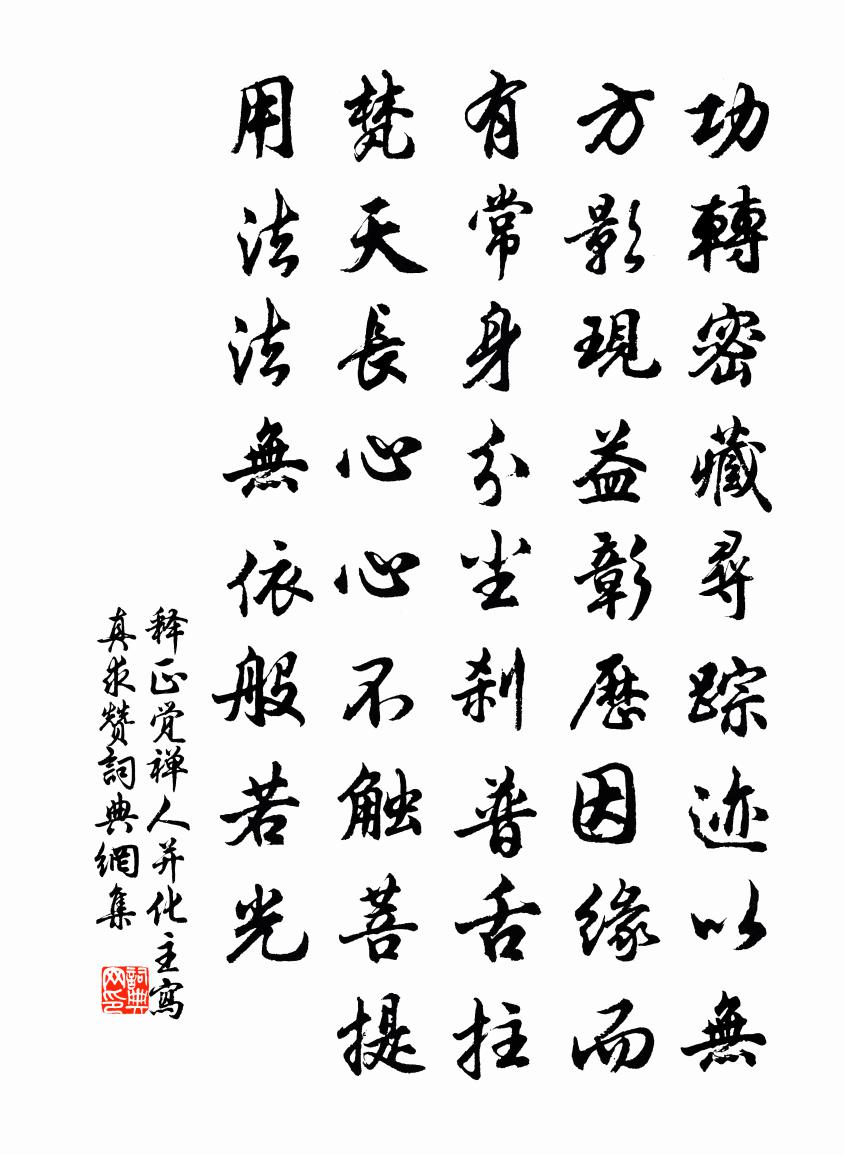 功轉密藏尋踪迹以無
方影現益彰歷因緣而
有常身分坐刹普舌拄
梵天長心心不触菩提
用法法無依般若光
释正觉禅人并化主寫
真求赞詞典網集
詞典网印